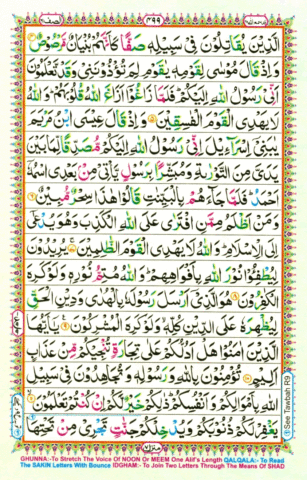 ٤٩٩
الَّذِيْنَ يُقَاتِلُوْنَ فِيْ سَبِيْلِهٖ صَفًّا كَاَنَّهُمْ بُنْيَانٌ مَّرْصُوْصٌ ۝٤
وَاِذْ قَالَ مُوْسٰى لِقَوْمِهٖ يٰقَوْمِ لِمَ تُؤْذُوْنَنِيْ وَقَدْ تَّعْلَمُوْنَ
اَنِّيْ رَسُوْلُ اللّٰهِ اِلَيْكُمْ ؕ فَلَمَّا زَاغُوْۤا اَزَاغَ اللّٰهُ قُلُوْبَهُمْ ؕ وَاللّٰهُ
لَا يَهْدِي الْقَوْمَ الْفٰسِقِيْنَ ۝٥ وَاِذْ قَالَ عِيْسَى ابْنُ مَرْيَمَ
يٰبَنِيْۤ اِسْرَآءِيْلَ اِنِّيْ رَسُوْلُ اللّٰهِ اِلَيْكُمْ مُّصَدِّقًا لِّمَا بَيْنَ
يَدَيَّ مِنَ التَّوْرٰىةِ وَمُبَشِّرًۢا بِرَسُوْلٍ يَّاْتِيْ مِنْۢ بَعْدِي اسْمُهٗۤ
اَحْمَدُ ؕ فَلَمَّا جَآءَهُمْ بِالْبَيِّنٰتِ قَالُوْا هٰذَا سِحْرٌ مُّبِيْنٌ ۝٦
وَمَنْ اَظْلَمُ مِمَّنِ افْتَرٰى عَلَى اللّٰهِ الْكَذِبَ وَهُوَ يُدْعٰۤى
اِلَى الْاِسْلَامِ ؕ وَاللّٰهُ لَا يَهْدِي الْقَوْمَ الظّٰلِمِيْنَ ۝٧ يُرِيْدُوْنَ
لِيُطْفِـُٔوْا نُوْرَ اللّٰهِ بِاَفْوَاهِهِمْ ؕ وَاللّٰهُ مُتِمُّ نُوْرِهٖ وَلَوْ كَرِهَ
الْكٰفِرُوْنَ ۝٨ هُوَ الَّذِيْۤ اَرْسَلَ رَسُوْلَهٗ بِالْهُدٰى وَدِيْنِ الْحَقِّ
لِيُظْهِرَهٗ عَلَى الدِّيْنِ كُلِّهٖ وَلَوْ كَرِهَ الْمُشْرِكُوْنَ ۝٩ يٰۤاَيُّهَا
الَّذِيْنَ اٰمَنُوْا هَلْ اَدُلُّكُمْ عَلٰى تِجَارَةٍ تُنْجِيْكُمْ مِّنْ عَذَابٍ
اَلِيْمٍ ۝١٠ تُؤْمِنُوْنَ بِاللّٰهِ وَرَسُوْلِهٖ وَتُجَاهِدُوْنَ فِيْ سَبِيْلِ
اللّٰهِ بِاَمْوَالِكُمْ وَاَنْفُسِكُمْ ؕ ذٰلِكُمْ خَيْرٌ لَّكُمْ اِنْ كُنْتُمْ تَعْلَمُوْنَ ۝١١
يَغْفِرْ لَكُمْ ذُنُوْبَكُمْ وَيُدْخِلْكُمْ جَنّٰتٍ تَجْرِيْ مِنْ تَحْتِهَا
منزل ٧
See Tawbah R9
GHUNNA:-To Stretch The Voice Of NOON Or MEEM One Alif's Length QALQALA:- To Read
The SAKIN Letters With Bounce IDGHAM:- To Join Two Letters Through The Means Of SHAD